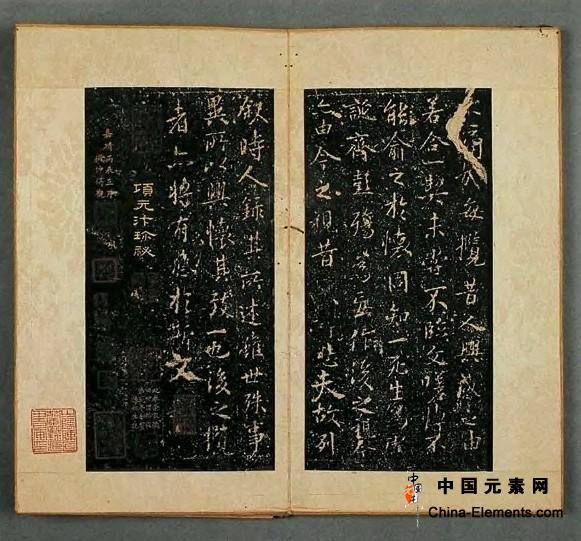 痛哉每攬昔人興感之由
若合一契未嘗不臨文嗟悼不
能喻之於懷固知一死生為虛
誕齊彭殤為妄作後之視今
亦由今之視昔 悲夫故列
敘時人錄其所述雖世殊事
異所以興懷其致一也後之攬
者亦將有感於斯文
項元汴珍秘
中国元素网
China-Elements.com